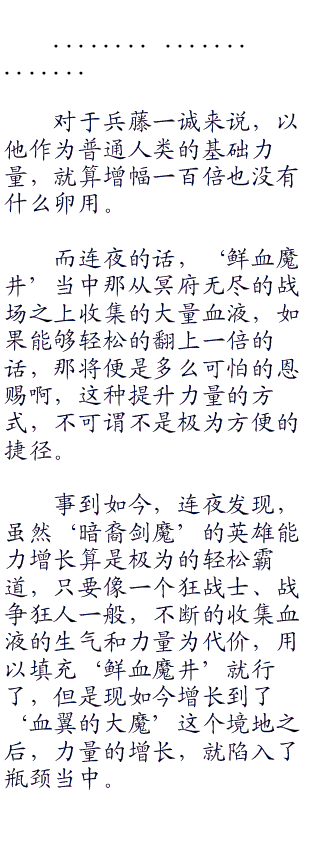 ........ .......
.......
对于兵藤一诚来说，以
他作为普通人类的基础力
量，就算增幅一百倍也没有
什么卵用。
而连夜的话，‘鲜血魔
井’当中那从冥府无尽的战
场之上收集的大量血液，如
果能够轻松的翻上一倍的
话，那将便是多么可怕的恩
赐啊，这种提升力量的方
式，不可谓不是极为方便的
捷径。
事到如今，连夜发现，
虽然‘暗裔剑魔’的英雄能
力增长算是极为的轻松霸
道，只要像一个狂战士、战
争狂人一般，不断的收集血
液的生气和力量为代价，用
以填充‘鲜血魔井’就行
了，但是现如今增长到了
‘血翼的大魔’这个境地之
后，力量的增长，就陷入了
瓶颈当中。